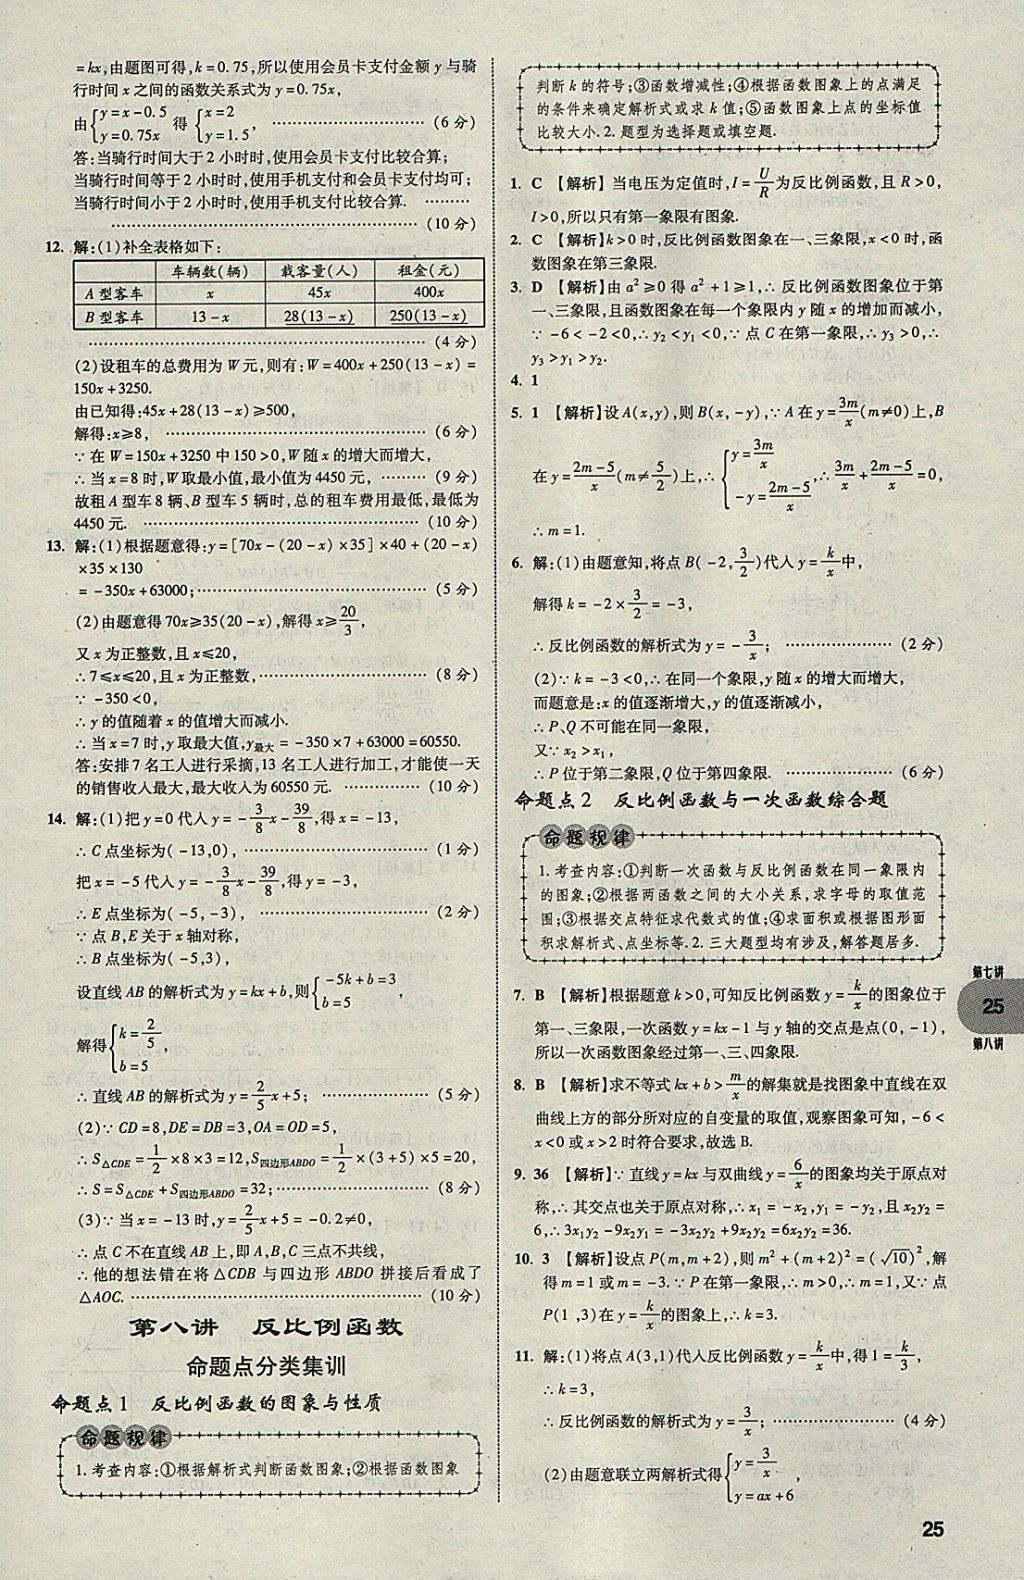 =kx,由题图可得,k=0.75,所以使用会员卡支付金额 y 与骑
行时间 x 之间的函数关系式为 y=0.75x,
由{y=x-0.5 y=0.75x 得 {x=2 y=1.5, ………………………… (6 分)
答:当骑行时间大于 2 小时时,使用会员卡支付比较合算;
当骑行时间等于 2 小时时,使用手机支付和会员卡支付均可;
当骑行时间小于 2 小时时,使用手机支付比较合算. ………
………………………………………………… (10 分)
12. 解:(1)补全表格如下:
车辆数(辆) 载客量(人) 租金(元)
A 型客车 x 45x 400x
B 型客车 13-x 28(13-x) 250(13-x)
………………………………………… (4 分)
(2)设租车的总费用为 W 元,则有:W=400x+250(13-x)=
150x+3250.
由已知得:45x+28(13-x)≥500,
解得:x≥8, ………………………………… (6 分)
∵在 W=150x+3250 中 150>0,W 随 x 的增大而增大,
∴当 x=8 时,W 取最小值,最小值为 4450 元, ……… (9 分)
故租 A 型车 8 辆、B 型车 5 辆时,总的租车费用最低,最低为
4450 元. ……………………………………… (10 分)
13. 解:(1)根据题意得:y=[70x-(20-x)×35]×40+(20-x)
×35×130
=-350x+63000;……………………………… (5 分)
(2)由题意得 70x≥35(20-x),解得 x≥20/3,
又 x 为正整数,且 x≤20,
∴7≤x≤20,且 x 为正整数, …………………… (8 分)
∵-350<0,
∴y 的值随着 x 的值增大而减小.
∴当 x=7 时,y 取最大值,y最大=-350×7+63000=60550.
答:安排 7 名工人进行采摘,13 名工人进行加工,才能使一天
的销售收入最大,最大为 60550 元. …………… (10 分)
14. 解:(1)把 y=0 代入 y=-3/8x-39/8,得 x=-13,
∴C 点坐标为(-13,0), ………………………… (1 分)
把 x=-5 代入 y=-3/8x-39/8,得 y=-3,
∴E 点坐标为(-5,-3), ……………………… (2 分)
∵点 B,E 关于 x 轴对称,
∴B 点坐标为(-5,3),
设直线 AB 的解析式为 y=kx+b,则{-5k+b=3 b=5,
解得{k=2/5, b=5
∴直线 AB 的解析式为 y=2/5x+5; ……………… (5 分)
(2)∵CD=8,DE=DB=3,OA=OD=5,
∴S△CDE=1/2×8×3=12,S四边形ABDO=1/2×(3+5)×5=20,
∴S=S△CDE+S四边形ABDO=32;…………………… (8 分)
(3)∵当 x=-13 时,y=2/5x+5=-0.2≠0,
∴点 C 不在直线 AB 上,即 A,B,C 三点不共线,
∴他的想法错在将△CDB 与四边形 ABDO 拼接后看成了
△AOC. ……………………………………… (10 分)
第八讲 反比例函数
命题点分类集训
命题点 1 反比例函数的图象与性质
命题规律
1.考查内容:①根据解析式判断函数图象;②根据函数图象
判断 k 的符号;③函数增减性;④根据函数图象上的点满足
的条件来确定解析式或求 k 值;⑤函数图象上点的坐标值
比较大小.2.题型为选择题或填空题.
1. C 【解析】当电压为定值时,I=U/R为反比例函数,且 R>0,
I>0,所以只有第一象限有图象.
2. C 【解析】k>0 时,反比例函数图象在一、三象限,x<0 时,函
数图象在第三象限.
3. D 【解析】由 a²≥0 得 a²+1≥1,∴反比例函数图象位于第
一、三象限,且函数图象在每一个象限内 y 随 x 的增大而减小,
∵-6<-2<0,∴y₂<y₁<0,∵点 C 在第一象限,∴y₃>0,∴
y₃>y₁>y₂.
4. 1
5. 1 【解析】设 A(x,y),则 B(x,-y),∵A 在 y=3m/x(m≠0)上,B
在 y=(2m-5)/x(m≠5/2)上,∴{y=3m/x -y=(2m-5)/x,∴3m/x+(2m-5)/x=0,
∴m=1.
6. 解:(1)由题意知,将点 B(-2,3/2)代入 y=k/x中,
解得 k=-2×3/2=-3,
∴反比例函数的解析式为 y=-3/x; …………… (2 分)
(2)∵k=-3<0,∴在同一个象限,y 随 x 的增大而增大,
而题意是:x 的值逐渐增大,y 的值逐渐减小,
∴P、Q 不可能在同一象限,
又∵x₂>x₁,
∴P 位于第二象限,Q 位于第四象限. …………… (6 分)
命题点 2 反比例函数与一次函数综合题
命题规律
1.考查内容:①判断一次函数与反比例函数在同一象限内
的图象;②根据两函数之间的大小关系,求字母的取值范
围;③根据交点特征求代数式的值;④求面积或根据图形面
积求解析式、点坐标等.2.三大题型均有涉及,解答题居多.
7. B 【解析】根据题意 k>0,可知反比例函数 y=k/x的图象位于
第一、三象限,一次函数 y=kx-1 与 y 轴的交点是点(0,-1),
所以一次函数图象经过第一、三、四象限.
8. B 【解析】求不等式 kx+b>m/x的解集就是找图象中直线在双
曲线上方的部分所对应的自变量的取值,观察图象可知,-6<
x<0 或 x>2 时符合要求,故选 B.
9. 36 【解析】∵直线 y=kx 与双曲线 y=6/x的图象均关于原点对
称,∴其交点也关于原点对称,∴x₁=-x₂,y₁=-y₂,且 x₂y₂=
6,∴3x₁y₂-9x₂y₁=-3x₂y₂+9x₂y₂=6x₂y₂=36.
10. 3 【解析】设点 P(m,m+2),则 m²+(m+2)²=(√10)²,解
得 m=1 或 m=-3.∵P 在第一象限,∴m>0,∴m=1,又∵点
P(1 ,3)在 y=k/x的图象上,∴k=3.
11. 解:(1)将点 A(3,1)代入反比例函数 y=k/x中,得 1=k/3,
∴k=3,
∴反比例函数的解析式为 y=3/x; ……………… (4 分)
(2)由题意联立两解析式得{y=3/x y=ax+6,
第七讲
25
第八讲
25